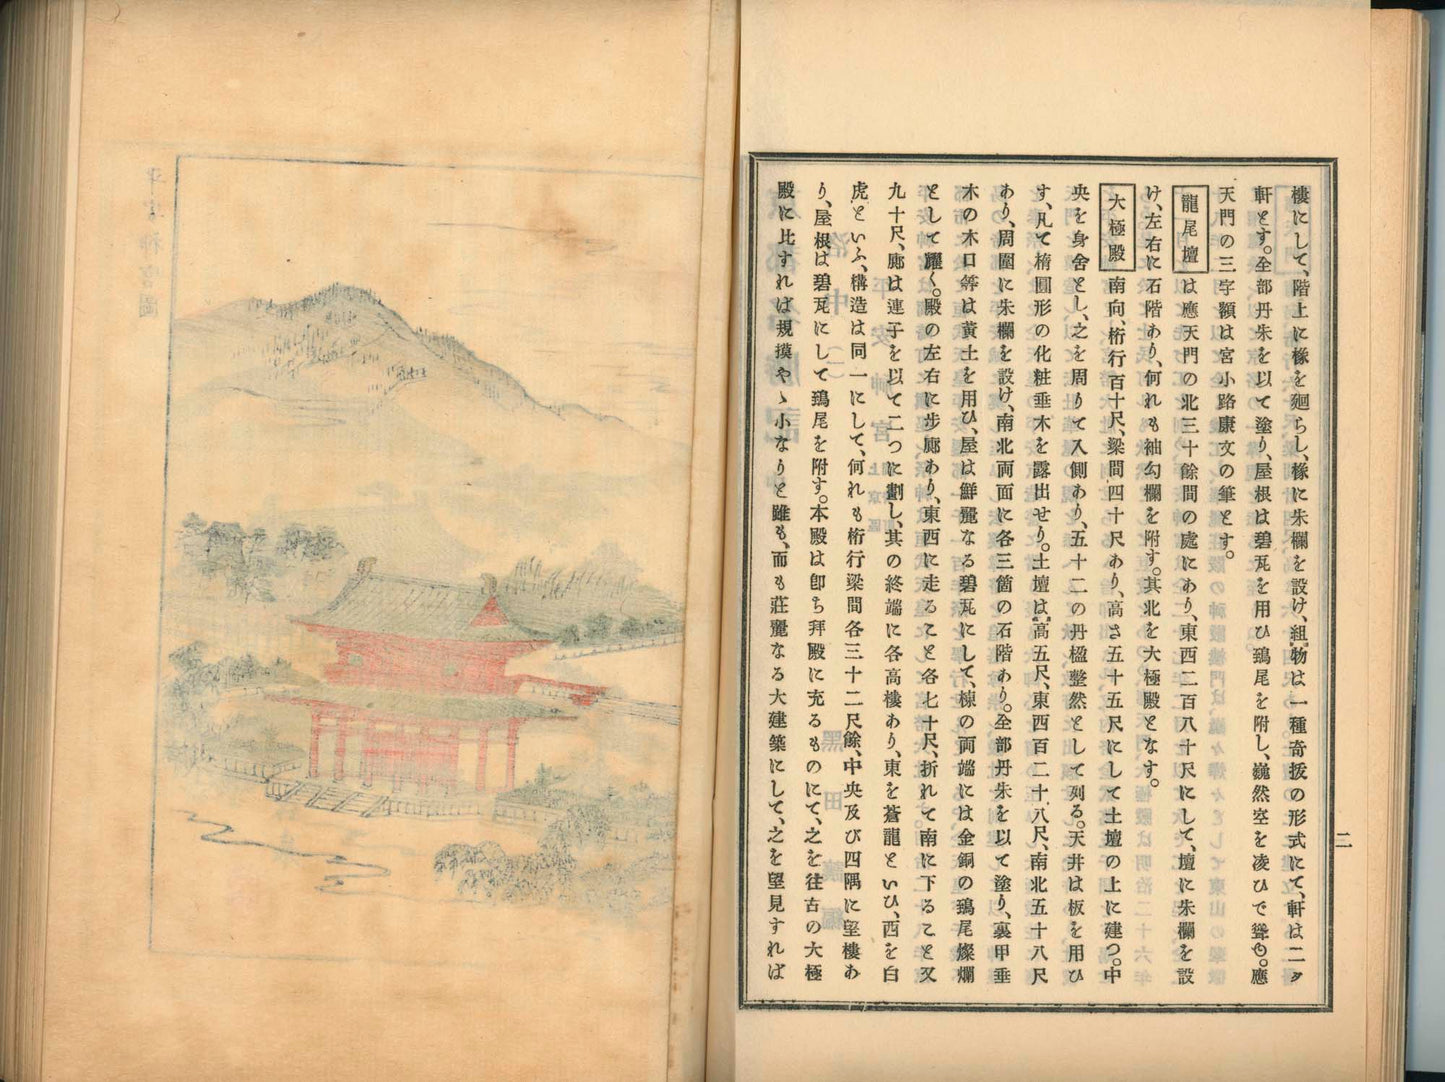 二
樓にして、階上に椽を廻らし、椽に朱欄を設け、組物は一種奇拔の形式にて、軒は二タ
軒とす。全部丹朱を以て塗り、屋根は碧瓦を用ひ鵄尾を附し、巍然空を凌ひで聳ゆ。應
天門の三字額は宮小路康文の筆とす。
龍尾壇 は應天門の北三十餘間の處にあり、東西二百八十尺にして、壇に朱欄を設
け、左右に石階あり、何れも袖勾欄を附す。其北を大極殿となす。
大極殿 南向、桁行百十尺、梁間四十尺あり、高さ五十五尺にして土壇の上に建つ。中
央を身舍とし、之を周りて入側あり、五十二の丹楹整然として列る。天井は板を用ひ
す、凡て楕圓形の化粧垂木を露出せり。土壇は高五尺、東西百二十八尺、南北五十八尺
あり、周圍に朱欄を設け、南北両面に各三箇の石階あり。全部丹朱を以て塗り、裏甲垂
木の木口等は黄土を用ひ、屋は鮮麗なる碧瓦にして、棟の両端には金銅の鵄尾燦爛
として耀く。殿の左右に步廊あり、東西に走ること各七十尺、折れて南に下ること又
九十尺、廊は連子を以て二つに劃し、其の終端に各高樓あり、東を蒼龍といひ、西を白
虎といふ、構造は同一にして、何れも桁行梁間各三十二尺餘、中央及び四隅に望樓あ
り、屋根は碧瓦にして鵄尾を附す。本殿は卽ち拜殿に充るものにて、之を往古の大極
殿に比すれば規摸やゝ小なりと雖も、而も莊麗なる大建築にして、之を望見すれば